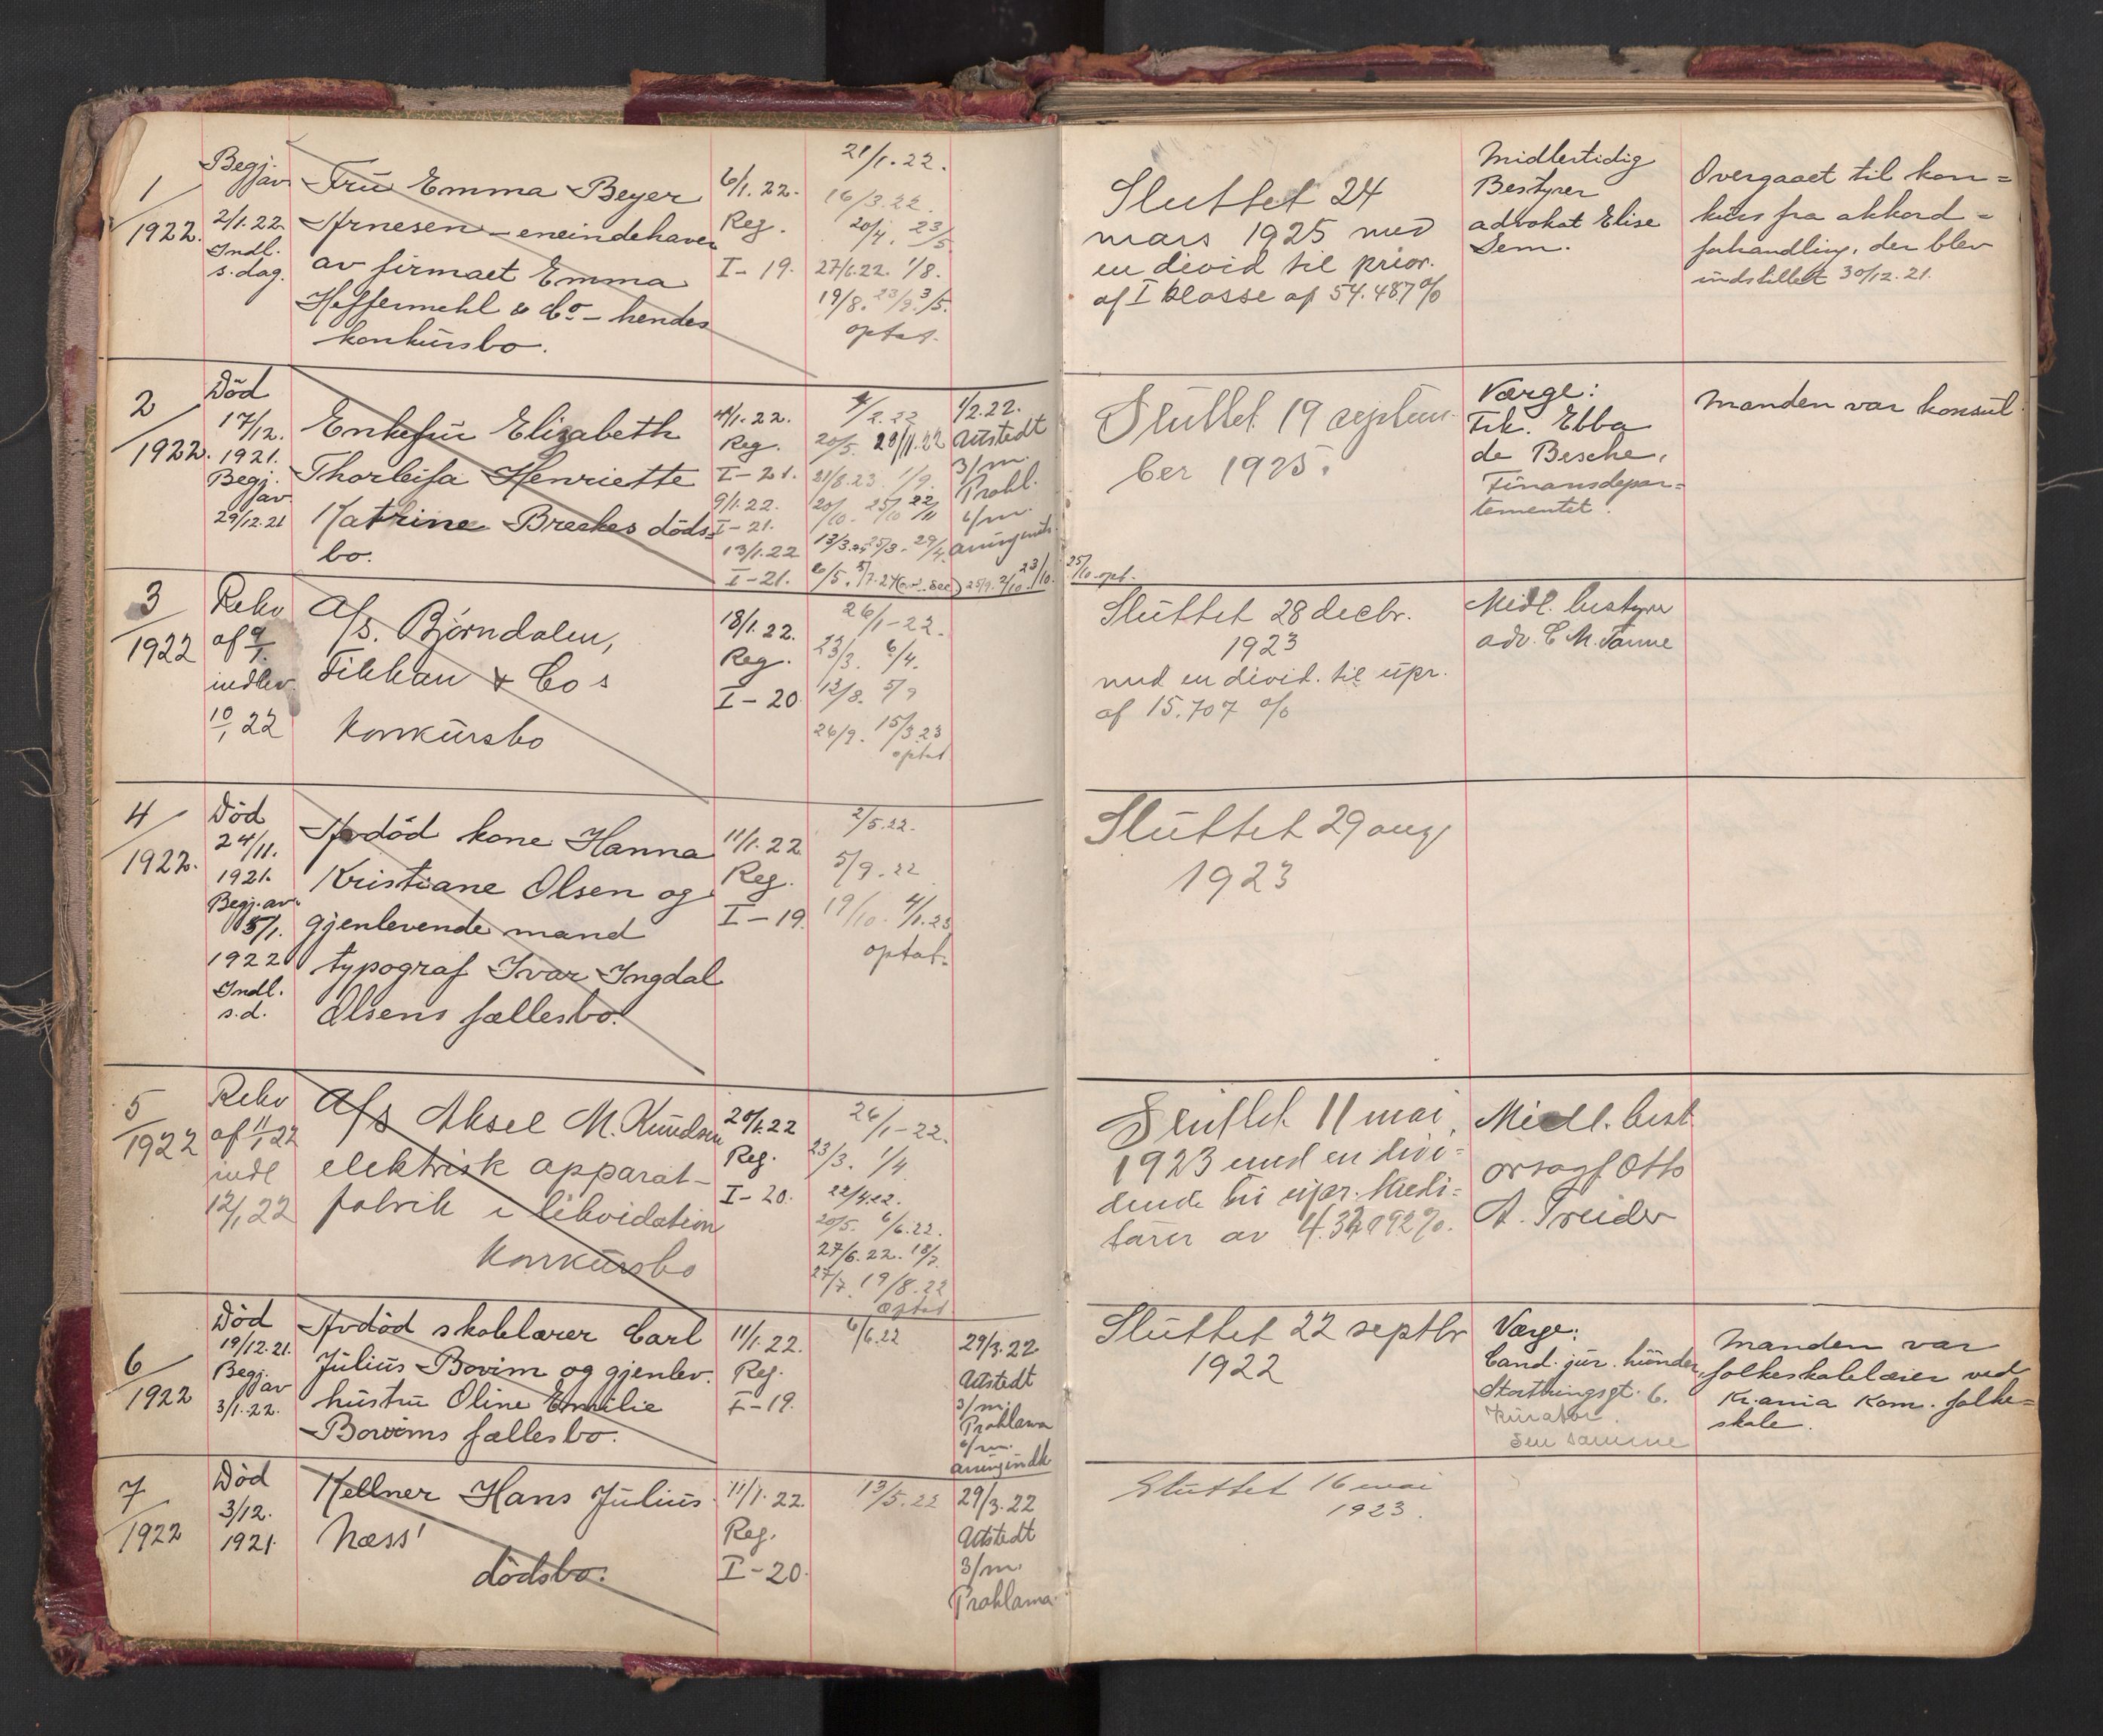 1/1922.
Begj. av
2/1.22.
Indl.
s. dag.
Fru Emma Beyer
Arnesen – eneindehaver
av firmaet Emma
Heffermehl & Co – hendes
konkursbo.
6/1.22.
Reg.
I – 19.
21/1.22.
16/3.22.
20/4. 23/5
27/6.22. 1/8.
19/8. 23/9. 3/5.
optat.
Sluttet 24
mars 1925 med
en divid til prior.
af I klasse af 54.487 %
Midlertidig
Bestyrer
advokat Elise
Sem.
Overgaaet til kon=
kurs fra akkord=
forhandling, der blev
indstillet 30/12.21.
2/1922.
Død
17/12.
1921.
Begj.
av
29/12.21
Enkefru Elizabeth
Thorleifa Henriette
Katrine Breekes døds=
bo.
4/1.22.
Reg.
I – 21.
9/1.22.
I – 21.
13/1.22
I – 21.
4/2.22
20/5. 28/11.22
21/8.23. 1/9.
20/10. 25/10 22/11
13/3.24 25/3. 29/4.
1/2.22.
Utstedt
3/m.
Prokl.
6/m.
25/9. 2/10. 23/10. 25/10. opt.
Sluttet 19 septem-
ber 1925.
Værge:
Frk. Ebba
de Besche,
Finansdepar=
tementet.
Manden var konsul.
3/1922
Rekv
af 9/1.
indlev.
10/1 22
A/s. Bjørndalen,
Fikkan & Co s
Konkursbo
18/1.22.
Reg.
I – 20.
26/1 – 22.
23/3. 6/4.
12/8. 5/9
26/9. 15/3.23
optat
Sluttet 28 decbr.
1923
med en divid. til upr.
af 15.707 %
Midl. bestyrer
adv. C M. Tanne
4/1922.
Død
24/11.
1921.
Begj. av
5/1.
1922
Indl.
s.d.
Avdød kone Hanna
Kristiane Olsen og
gjenlevende mand
typograf Ivar Ingdal
Olsens fællesbo.
11/1.22
Reg.
I – 19.
2/5.22.
5/9.22
19/10. 4/1.23
optat.
Sluttet 29 aug
1923
5/1922
Rekv
af 11/1 22
indl
12/1 22
A/s Aksel M. Knudsen
elektrisk apparat-
fabrik i likvidation
Konkursbo
20/1.22
Reg.
I – 20.
26/1 – 22.
23/3. 1/4
22/4.22.
20/5. 6/6.22.
27/6.22. 18/7.
27/7. 19/8.22
optat
Sluttet 11 mai
1923 med en divi=
dende til upr. kredi=
torer av
Midl. best.
orsagf Otto
A. Treider
6/1922
Død
19/12.21.
Begj.
av
3/1.22.
Avdød skolelærer Carl
Julius Bovim og gjenlev.
hustru Oline Emilie
Bovims fællesbo.
11/1.22.
Reg.
I – 19.
6/6.22
29/3.22
Utstedt
3/m.
Proklama
6/m.
Sluttet 22 septbr
1922
Værge:
Cand. jur. hunder
Stortingsgt. 6.
Kurator
den samme
Manden var
folkeskolelærer ved
Kr.ania Kom. folke=
skole.
7/1922
Død
3/12.
1921.
Kellner Hans Julius
Næss'
dødsbo.
11/1.22.
Reg.
I – 20.
13/5.22
29/3.22
Utstedt
3/m.
Proklama.
Sluttet 16 mai
1923.